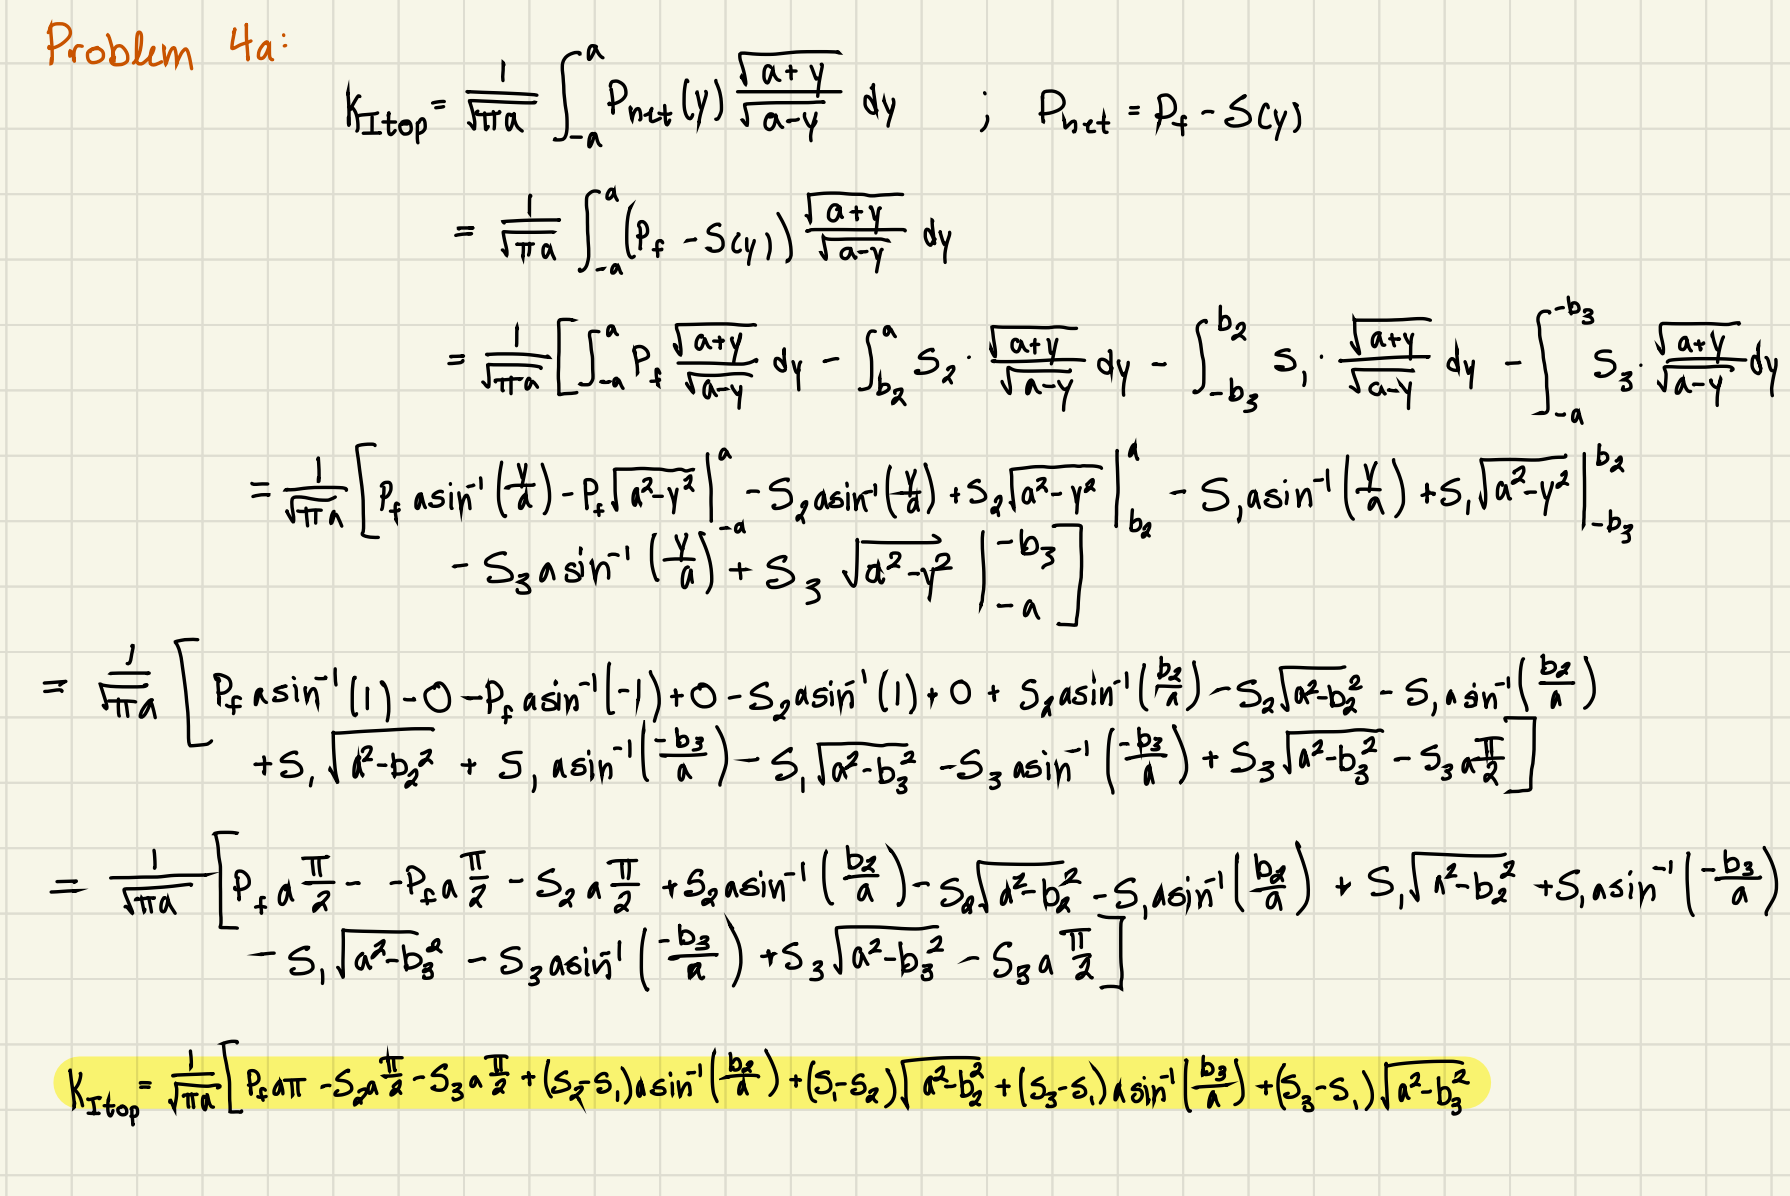 Problem 4a:
K_Itop = 1/√(πa) ∫_{-a}^{a} P_net(y) √(a+y)/√(a-y) dy ; P_net = P_f - S(y)
= 1/√(πa) ∫_{-a}^{a} (P_f - S(y)) √(a+y)/√(a-y) dy
= 1/√(πa) [ ∫_{-a}^{a} P_f √(a+y)/√(a-y) dy - ∫_{b_2}^{a} S_2 · √(a+y)/√(a-y) dy - ∫_{-b_3}^{b_2} S_1 · √(a+y)/√(a-y) dy - ∫_{-a}^{-b_3} S_3 · √(a+y)/√(a-y) dy
= 1/√(πa) [ P_f a sin⁻¹(y/a) - P_f √(a²-y²) |_{-a}^{a} - S_2 a sin⁻¹(y/a) + S_2 √(a²-y²) |_{b_2}^{a} - S_1 a sin⁻¹(y/a) + S_1 √(a²-y²) |_{-b_3}^{b_2}
- S_3 a sin⁻¹(y/a) + S_3 √(a²-y²) |_{-a}^{-b_3} ]
= 1/√(πa) [ P_f a sin⁻¹(1) - 0 - P_f a sin⁻¹(-1) + 0 - S_2 a sin⁻¹(1) + 0 + S_2 a sin⁻¹(b_2/a) - S_2 √(a²-b_2²) - S_1 a sin⁻¹(b_2/a)
+ S_1 √(a²-b_2²) + S_1 a sin⁻¹(-b_3/a) - S_1 √(a²-b_3²) - S_3 a sin⁻¹(-b_3/a) + S_3 √(a²-b_3²) - S_3 a π/2 ]
= 1/√(πa) [ P_f a π/2 - -P_f a π/2 - S_2 a π/2 + S_2 a sin⁻¹(b_2/a) - S_2 √(a²-b_2²) - S_1 a sin⁻¹(b_2/a) + S_1 √(a²-b_2²) + S_1 a sin⁻¹(-b_3/a)
- S_1 √(a²-b_3²) - S_3 a sin⁻¹(-b_3/a) + S_3 √(a²-b_3²) - S_3 a π/2 ]
K_Itop = 1/√(πa) [ P_f aπ - S_2 a π/2 - S_3 a π/2 + (S_2-S_1) a sin⁻¹(b_2/a) + (S_1-S_2) √(a²-b_2²) + (S_3-S_1) a sin⁻¹(b_3/a) + (S_3-S_1) √(a²-b_3²)